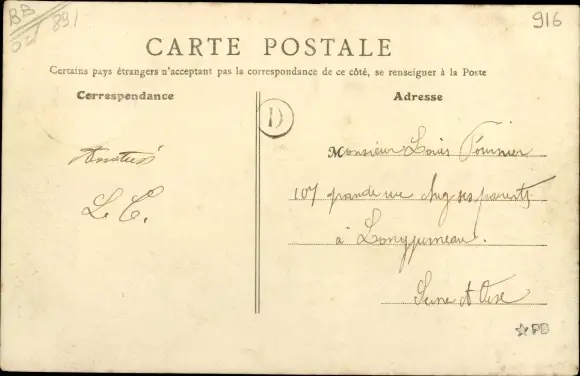 BB
891
916
CARTE POSTALE
Certains pays étrangers n'acceptant pas la correspondance de ce côté, se renseigner à la Poste
Correspondance
Adresse
D
Amitiés
L. C.
Monsieur Louis Fournier
107 grande rue chez ses parents
à Longjumeau.
Seine et Oise
PB